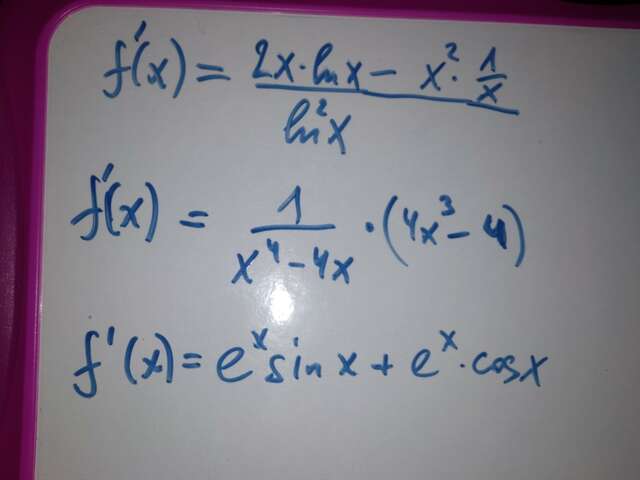 f'(x) = (2x·lnx − x²·1/x) / ln²x
f'(x) = 1/(x⁴−4x) · (4x³−4)
f'(x) = eˣsinx + eˣ·cosx